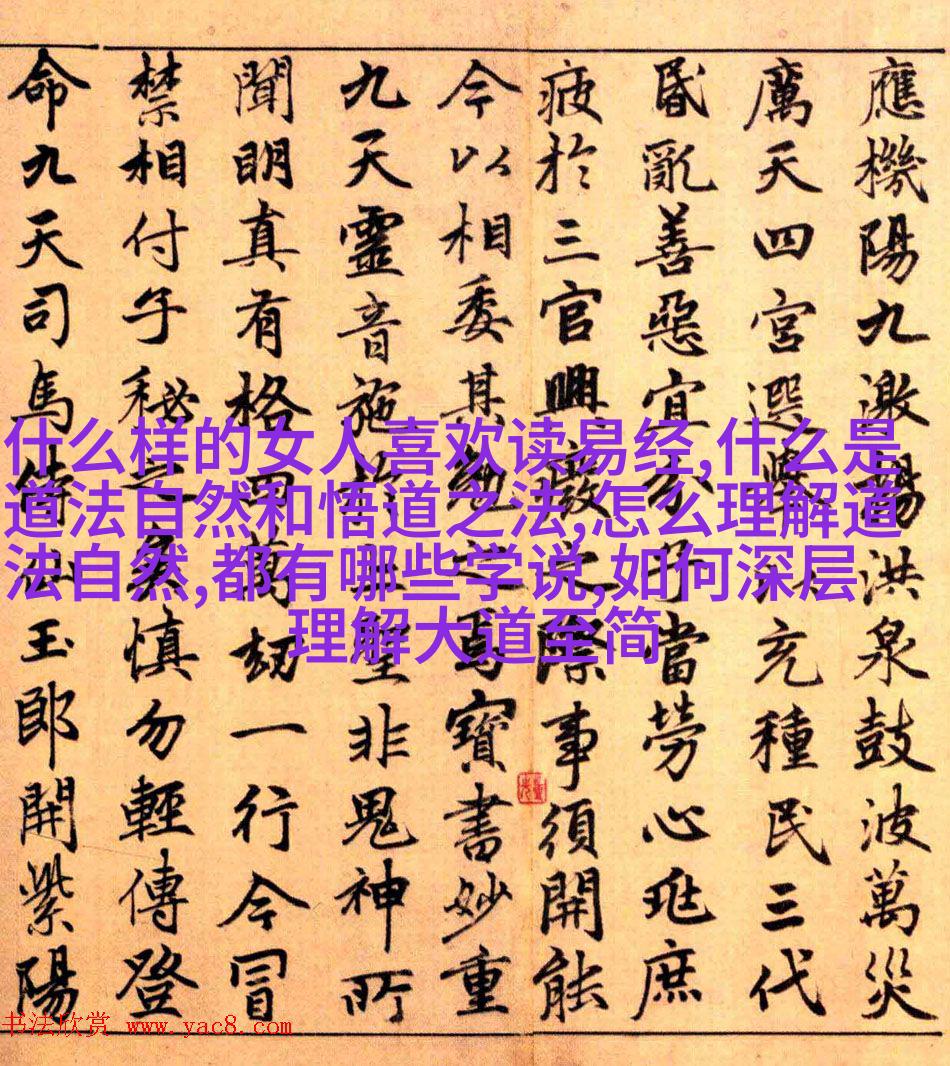 應機陽九激揚洪泉鼓波萬災
厲天四宮選舉八充種民三代
昏亂善惡宜分予當勞心兆庶
疲於三官興廢之際事須開能
今以相委其寶書妙重
九天靈音施於上聖非鬼神所
聞明真有格四萬劫一行今冒
禁相付子秘之矣慎勿輕傳登
命九天司馬侍仙玉郎開紫陽
什么样的女人喜欢读易经,什么是
道法自然和悟道之法,怎么理解道
法自然,都有哪些学说,如何深层
理解大道至简
书法欣赏 www.yac8.com